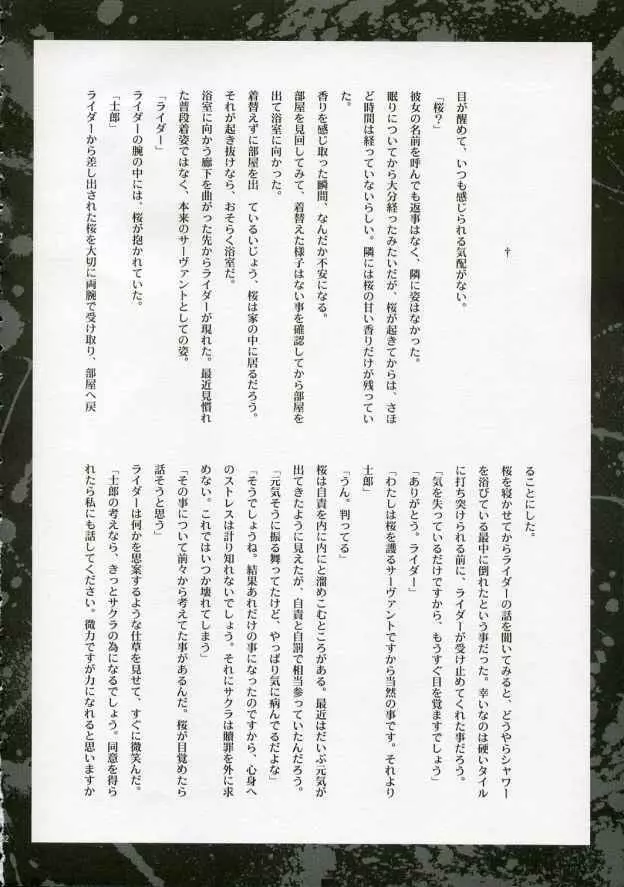 †
目が醒めて、いつも感じられる気配がない。
「桜？」
彼女の名前を呼んでも返事はなく、隣に姿はなかった。
眠りについてから大分経ったみたいだが、桜が起きてからは、さほ
ど時間は経っていないらしい。隣には桜の甘い香りだけが残ってい
た。
香りを感じ取った瞬間、なんだか不安になる。
部屋を見回してみて、着替えた様子はない事を確認してから部屋を
出て浴室に向かった。
着替えずに部屋を出　ているいじょう、桜は家の中に居るだろう。
それが起き抜けなら、おそらく浴室だ。
浴室に向かう廊下を曲がった先からライダーが現れた。最近見慣れ
た普段着姿ではなく、本来のサーヴァントとしての姿。
「ライダー」
ライダーの腕の中には、桜が抱かれていた。
「士郎」
ライダーから差し出された桜を大切に両腕で受け取り、部屋へ戻
ることにした。
桜を寝かせてからライダーの話を聞いてみると、どうやらシャワー
を浴びている最中に倒れたという事だった。幸いなのは硬いタイル
に打ち突けられる前に、ライダーが受け止めてくれた事だろう。
「気を失っているだけですから、もうすぐ目を覚ますでしょう」
「ありがとう。ライダー」
「わたしは桜を護るサーヴァントですから当然の事です。それより
士郎」
「うん。判ってる」
桜は自責を内に内にと溜めこむところがある。最近はだいぶ元気が
出てきたように見えたが、自責と自罰で相当参っていたんだろう。
「元気そうに振る舞ってたけど、やっぱり気に病んでるだよな」
「そうでしょうね。結果あれだけの事になったのですから、心身へ
のストレスは計り知れないでしょう。それにサクラは贖罪を外に求
めない。これではいつか壊れてしまう」
「その事について前々から考えてた事があるんだ。桜が目覚めたら
話そうと思う」
ライダーは何かを思案するような仕草を見せて、すぐに微笑んだ。
「士郎の考えなら、きっとサクラの為になるでしょう。同意を得ら
れたら私にも話してください。微力ですが力になれると思いますか